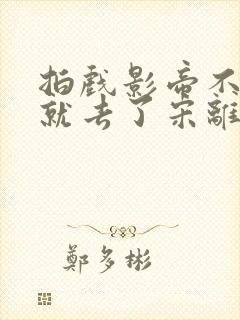 拍戲影帝不
就去了宋離
鄭多彬